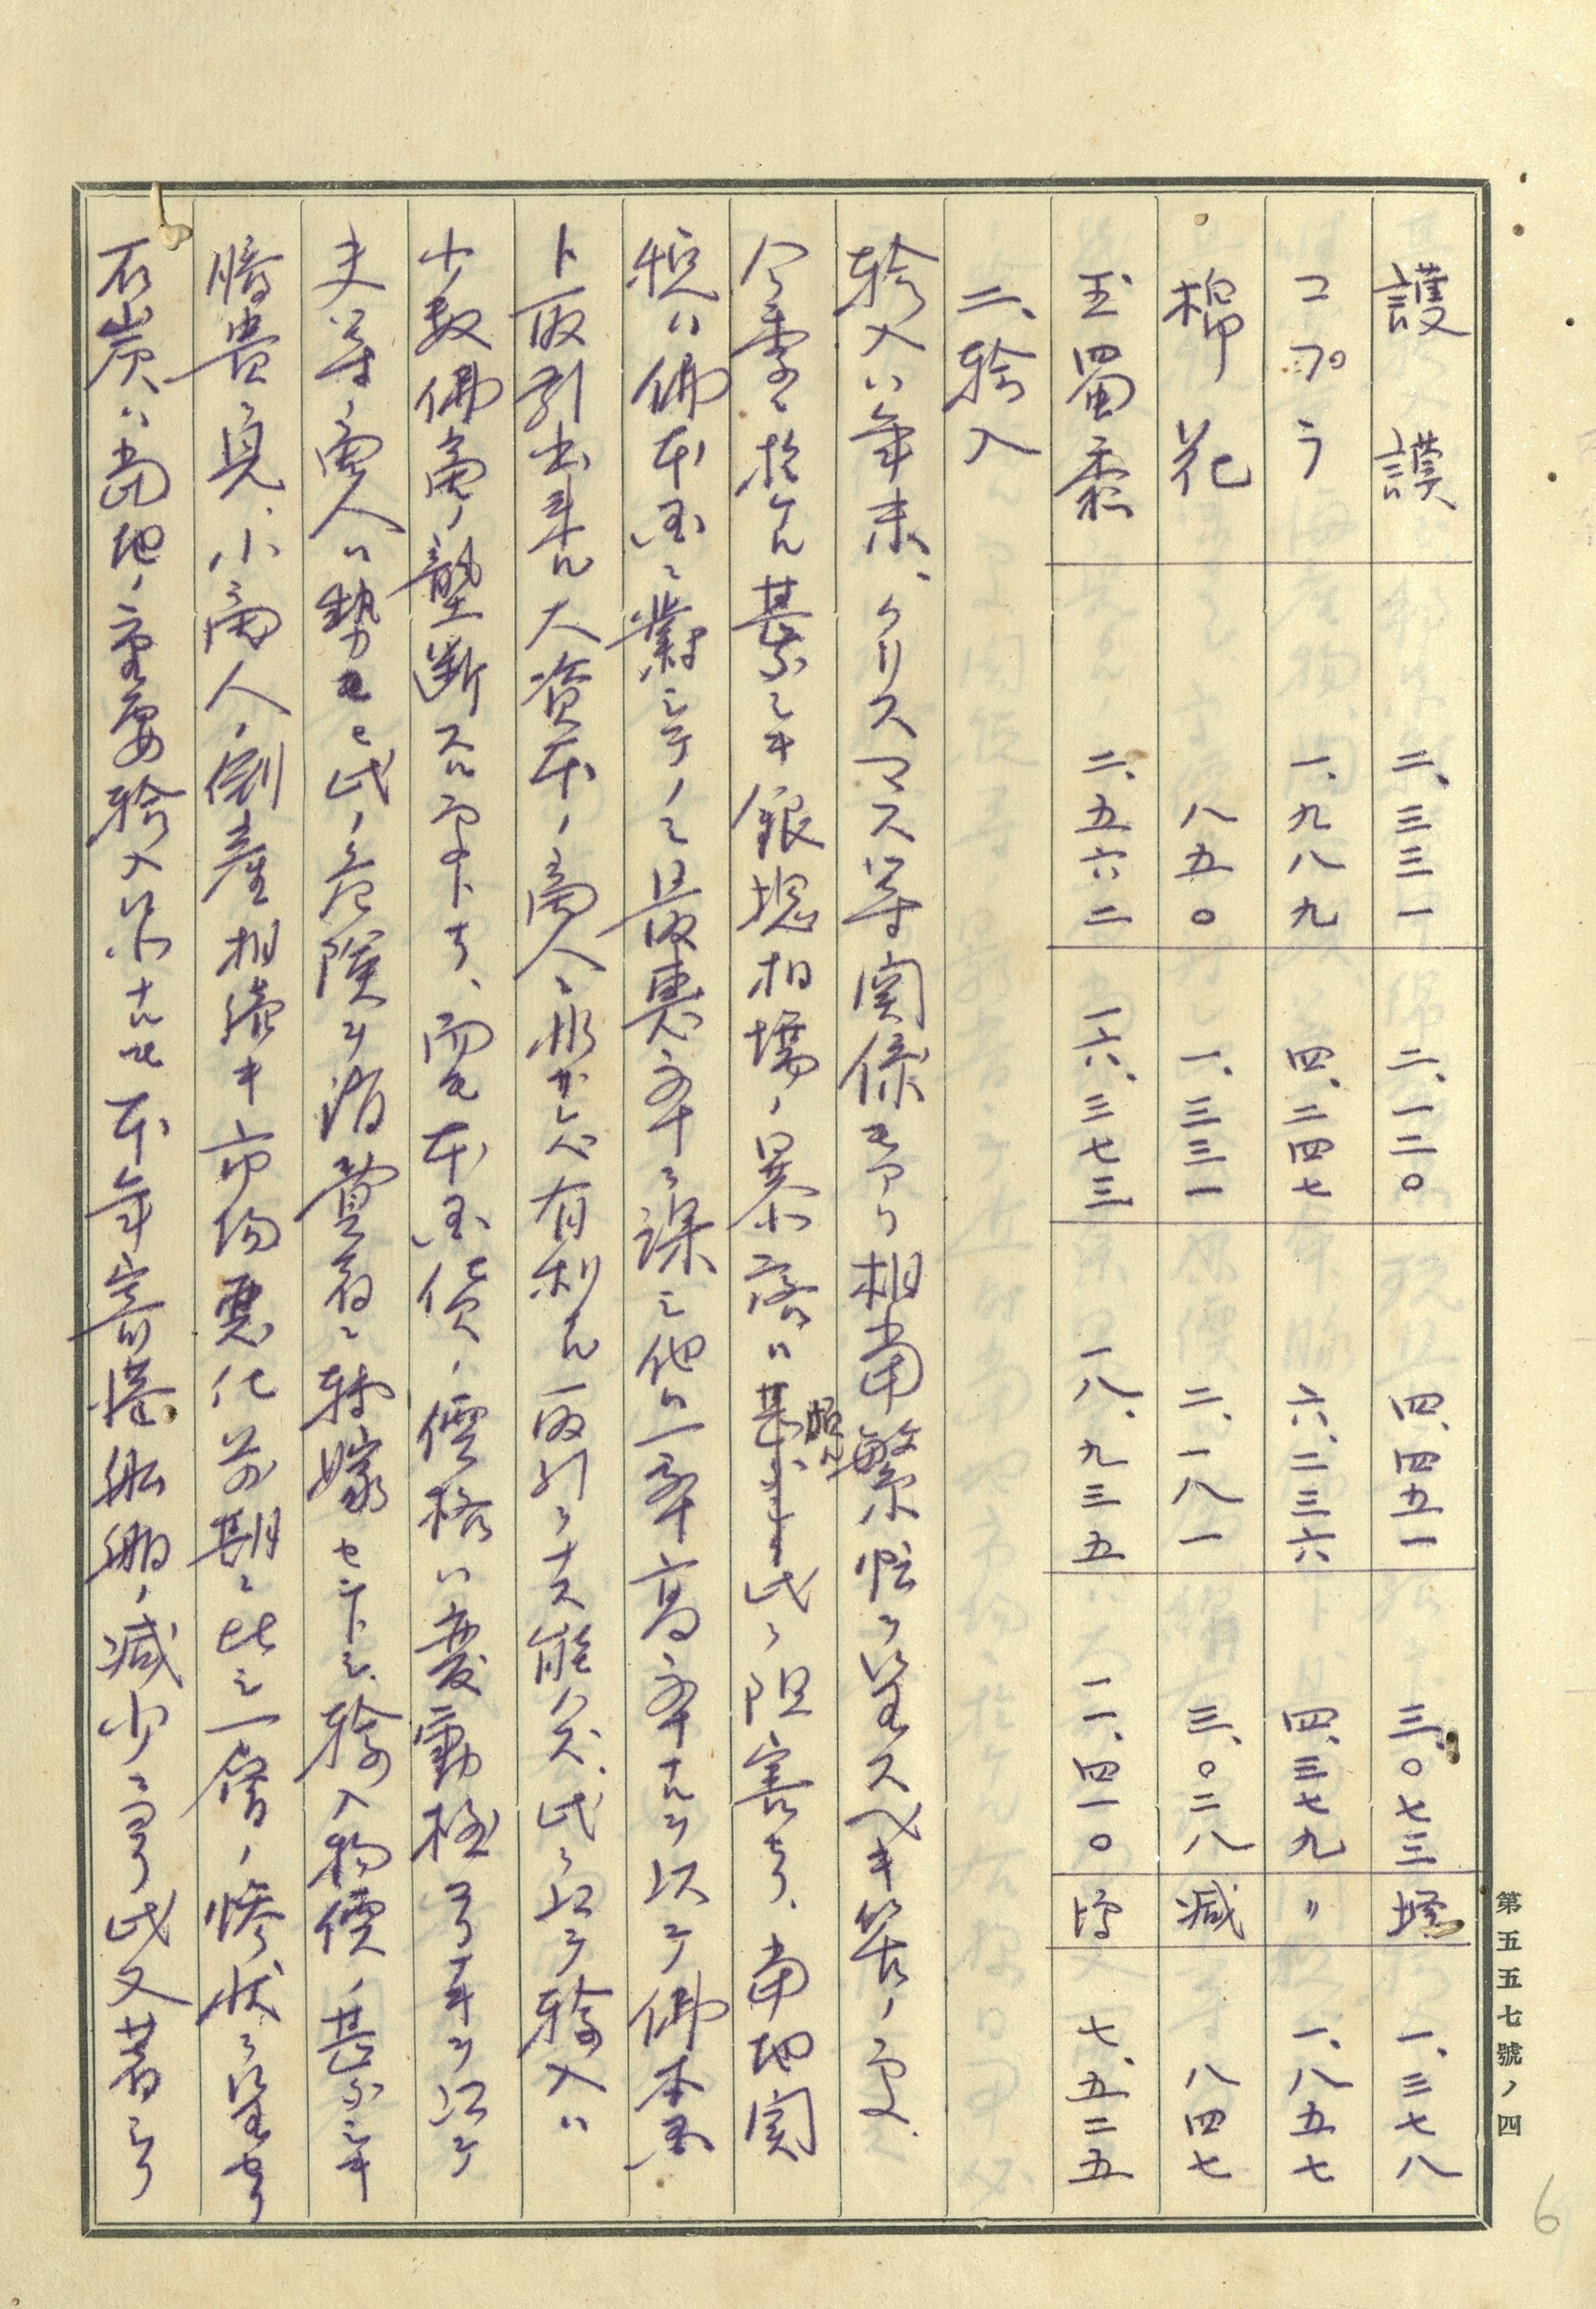 護謨 二、三三一 二、一二〇 四、四五一 三、〇七三 増 一、三七八
コプラ 一、九八九 四、二四七 六、二三六 四、三七九 〃 一、八五七
棉花 八五〇 一、三三一 二、一八一 三、〇二八 減 八四七
玉蜀黍 二、五六二 一六、三七三 一八、九三五 一一、四一〇 増 七、五二五
二、輸入
輸入ハ年末、クリスマス等関係モアリ相当繁忙ヲ呈スベキ筈ノ処
今季ニ於ケル甚シキ銀塊相場ノ暴落ハ甚シク此ヲ阻害セリ、当地関
税ハ佛本国ニ対シテノミ最恵率ヲ課シ他ハ一率高率ナルヲ以テ佛本国
ト取引出来ル大資本ノ商人ニ非サレハ有利ナル取引ヲナス能ハス、此ヲ以テ輸入ハ
少数佛商ノ壟断スル処トナリ、而モ本国債ノ価格ハ変動極リナキヲ以テ
夫等ノ商人ハ勢ヒ此ノ危険ヲ消費者ニ転嫁セントシ、輸入物価ノ甚シキ
騰貴ヲ見、小商人ノ倒産相続キ市場悪化前期ニ比シ一層ノ惨状ヲ呈セリ
石炭ハ当地ノ重要輸入品ナルモ本年寄港船舶ノ減少ニヨリ此又著シク
第五五七號ノ四
6